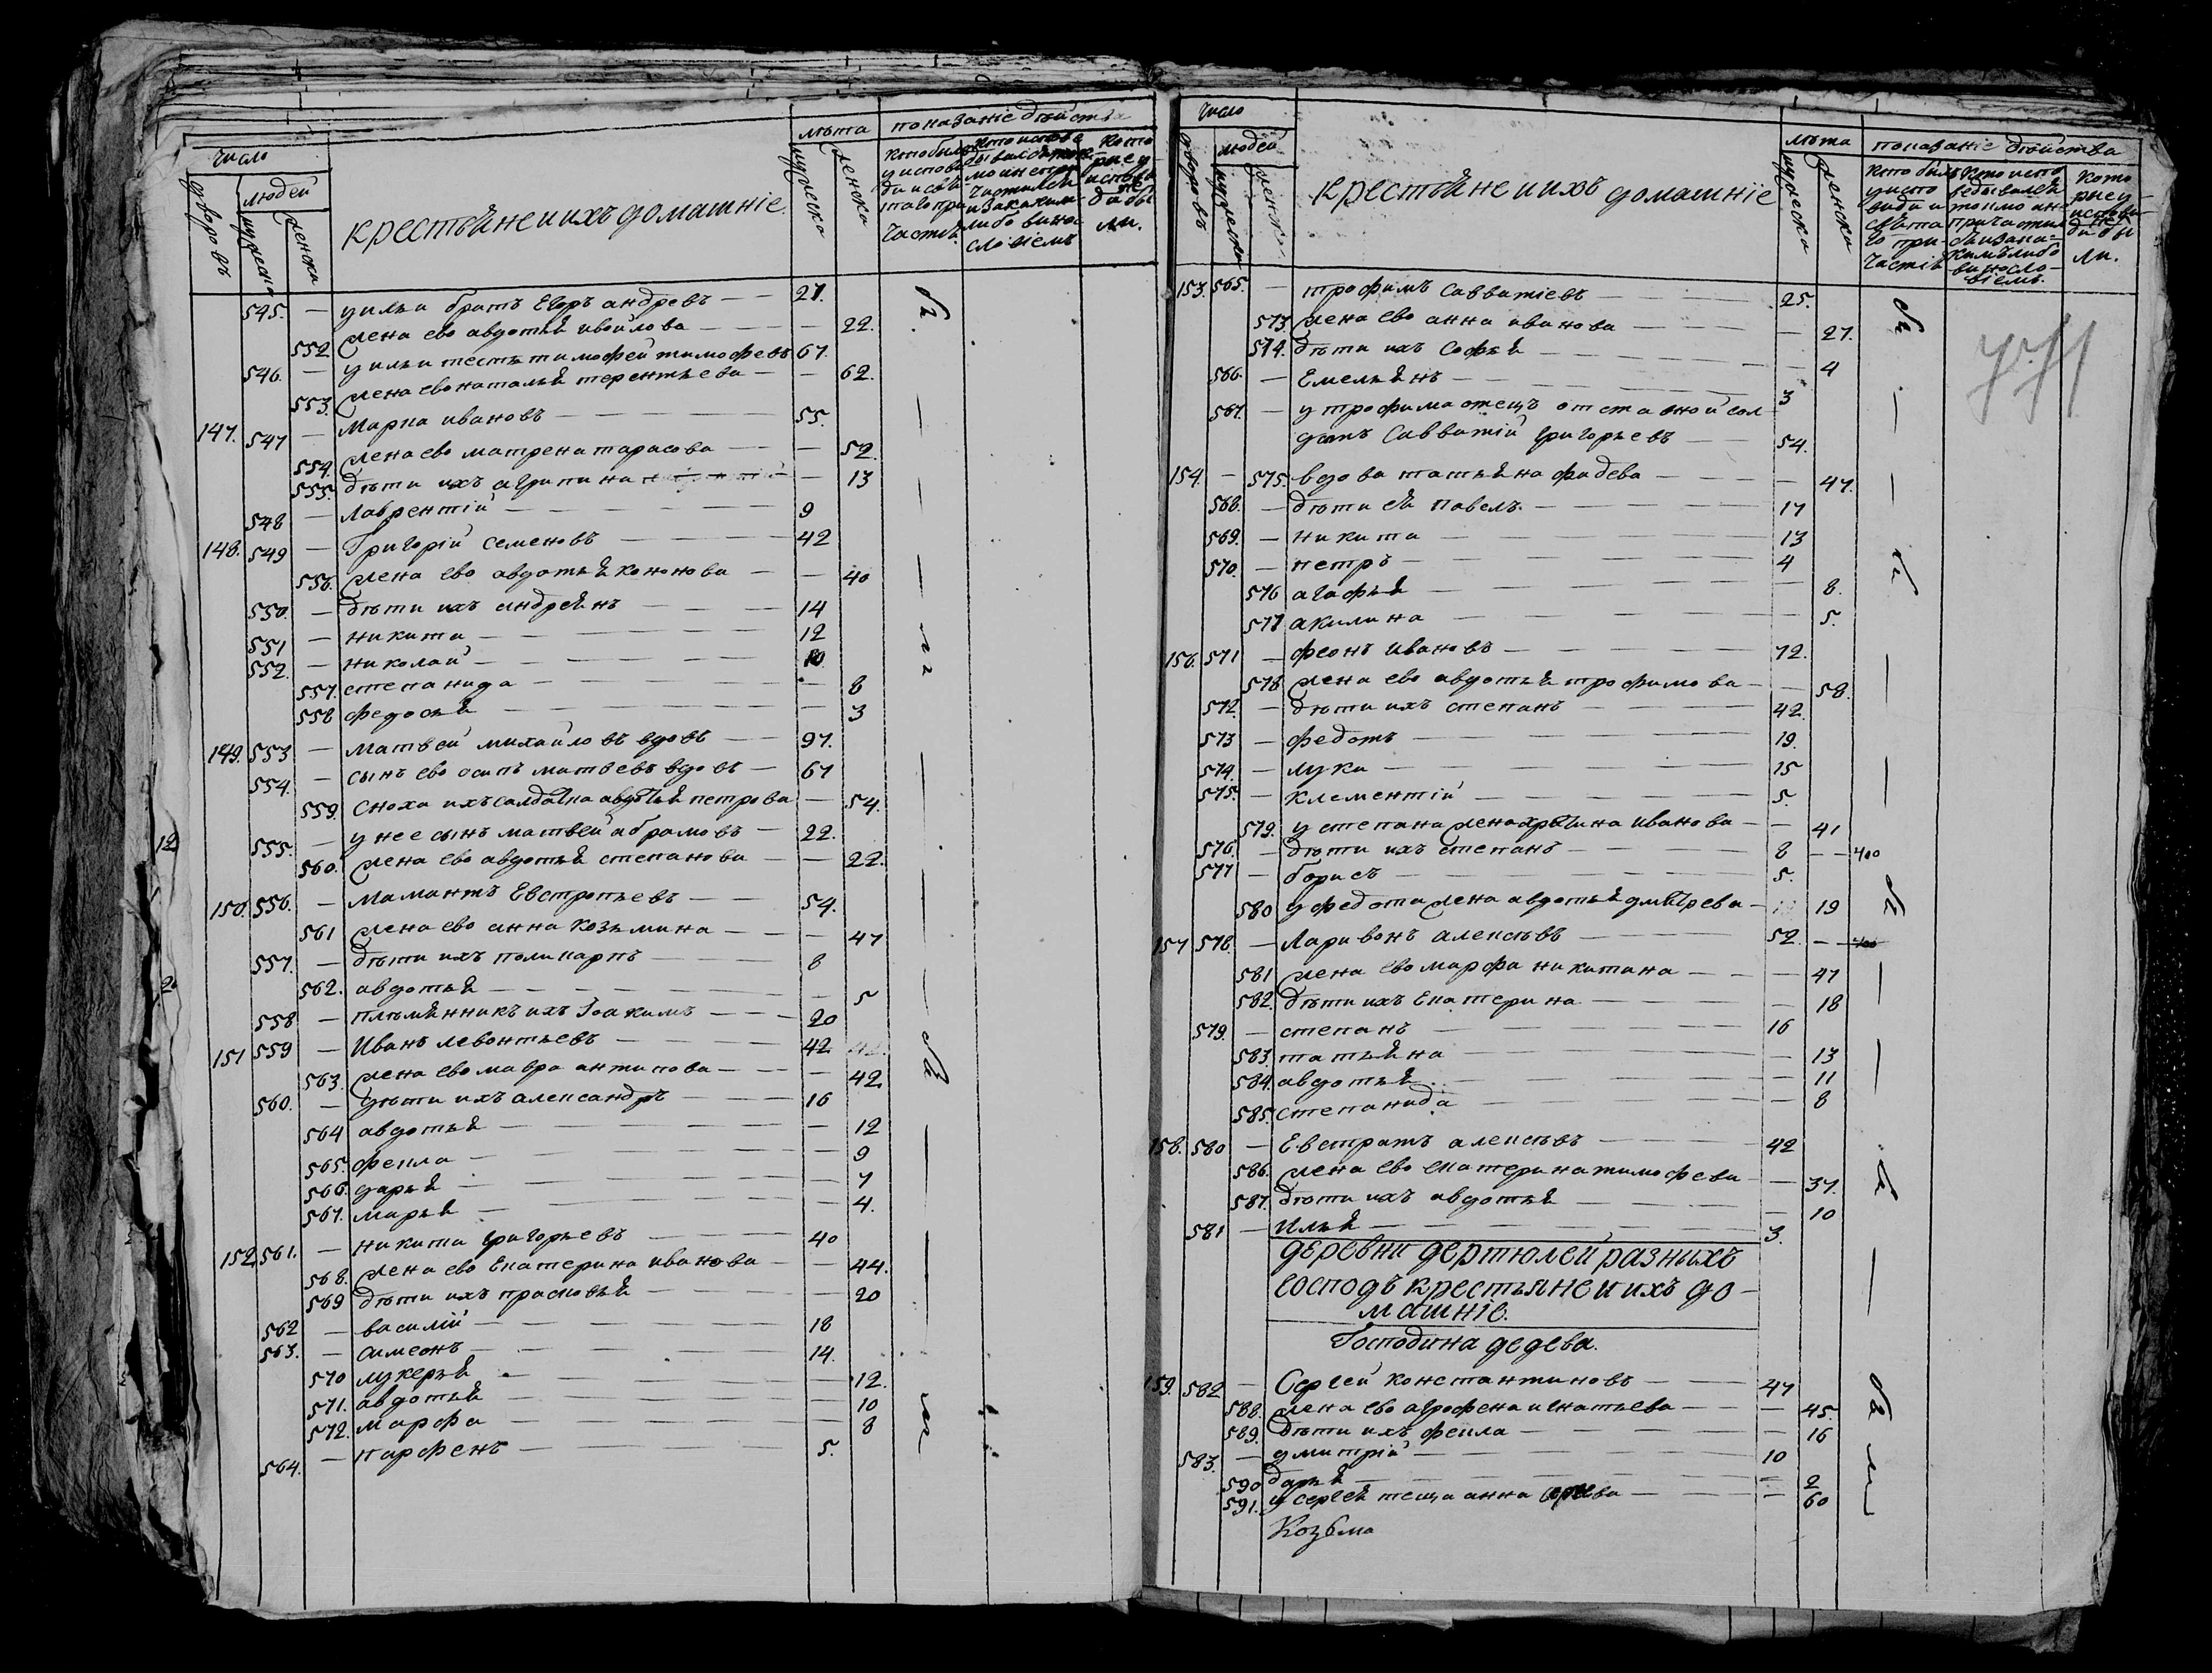 Число
дворовъ
людей
мужеска
женска
крестьяне и ихъ домашніе
лѣта
мужеска
женска
показаніе дѣйства
545. — у ильи братъ Егоръ андревъ — — 27.
552. жена ево авдотья ивойлова — — — 22.
546. — у ильи тесть тимофей тимофевъ 67.
553. жена ево наталья терентьева — — 62.
147. 547 — марка ивановъ — — — 55.
554. жена ево матрена тарасова — — 52.
555. дѣти ихъ агрипина — 13
548 — лаврентій — — — 9
148. 549 — Григорій семеновъ — — — 42
556. жена ево авдотья кононова — — 40
550. — дѣти ихъ андреянъ — — — 14
551 — никита — — — 12
552. — николай — — — 10
557. степанида — — — 8
558 федосья — — — 3
149. 553 — матвей михайловъ вдовъ — — 97.
554. — сынъ ево осипъ матвевъ вдовъ — 67
559. сноха ихъ салдатка авдотья петрова — 54.
12
555. — у нее сынъ матвей абрамовъ — 22.
560. жена ево авдотья степанова — — 22.
150. 556. — мамантъ Евстропьевъ — — 54.
561 жена ево анна козьмина — — — 47
557. — дѣти ихъ поликарпъ — — 8
562. авдотья — — — 5
558 — племянникъ ихъ Іоакимъ — — — 20
151 559 — Иванъ левонтьевъ — — — 42
563. жена ево мавра антипова — — — 42
560. — дѣти ихъ александръ — — — 16
564 авдотья — — — 12
565. фекла — — — 9
566. дарья — — — 7
567. марья — — — 4.
152 561. — никита григорьевъ — — — 40
568. жена ево Екатерина иванова — — 44.
569 дѣти ихъ прасковья — — — 20
562 — василій — — — 18
563. — симеонъ — — — 14.
570 лукерья — — — 12.
571. авдотья — — — 10
572. марфа — — — 8
564. — парфенъ — — — 5.
Число
дворовъ
людей
мужеска
женска
крестьяне и ихъ домашніе
лѣта
мужеска
женска
показаніе дѣйства
153. 565. — трофимъ Савватіевъ — — — 25.
573. жена ево анна иванова — — — 27.
574. дѣти ихъ Софья — — — 4
566. — Емельянъ — — — 3
567. — у трофима отецъ отставной сол
датъ Савватій григорьевъ — — 54.
154. — 575. вдова татьяна фадева — — — 47.
568. — дѣти ея павелъ — — — 17
569. — никита — — — 13
570. — петръ — — — 4
576 агафья — — — 8.
577 акилина — — — 5.
156. 571 — феонъ ивановъ — — — 72.
578 жена ево авдотья трофимова — — 58.
572. — дѣти ихъ степанъ — — — 42.
573 — федотъ — — — 19.
574. — лука — — — 15
575. — клементій — — — 5.
579. у степана жена ирина иванова — — 41
576. — дѣти ихъ степанъ — — 8
577 — борисъ — — — 5.
580 у федота жена авдотья дмитрева — 19
157 578. — Ларивонъ алексѣвъ — — — 52.
581 жена ево марфа никитина — — — 47
582. дѣти ихъ Екатерина — — — 18
579. — степанъ — — — 16
583. татьяна — — — 13
584. авдотья — — — 11
585. степанида — — — 8
158. 580 — Евстратъ алексѣвъ — — — 42
586. жена ево екатерина тимофева — — 37.
587. дѣти ихъ авдотья — — — 10
581 — Илья — — — 3.
деревни дертюлей разныхъ
господъ крестьяне и ихъ до-
машніе.
Господина дедева.
159. 582 — Сергей константиновъ — — 47
588. жена ево агрофена игнатьева — — — 45.
589. дѣти ихъ фекла — — — 16
583. — дмитрій — — — 10
590 дарья — — — 2
591. у сергея теща анна — — — 60
Козьма